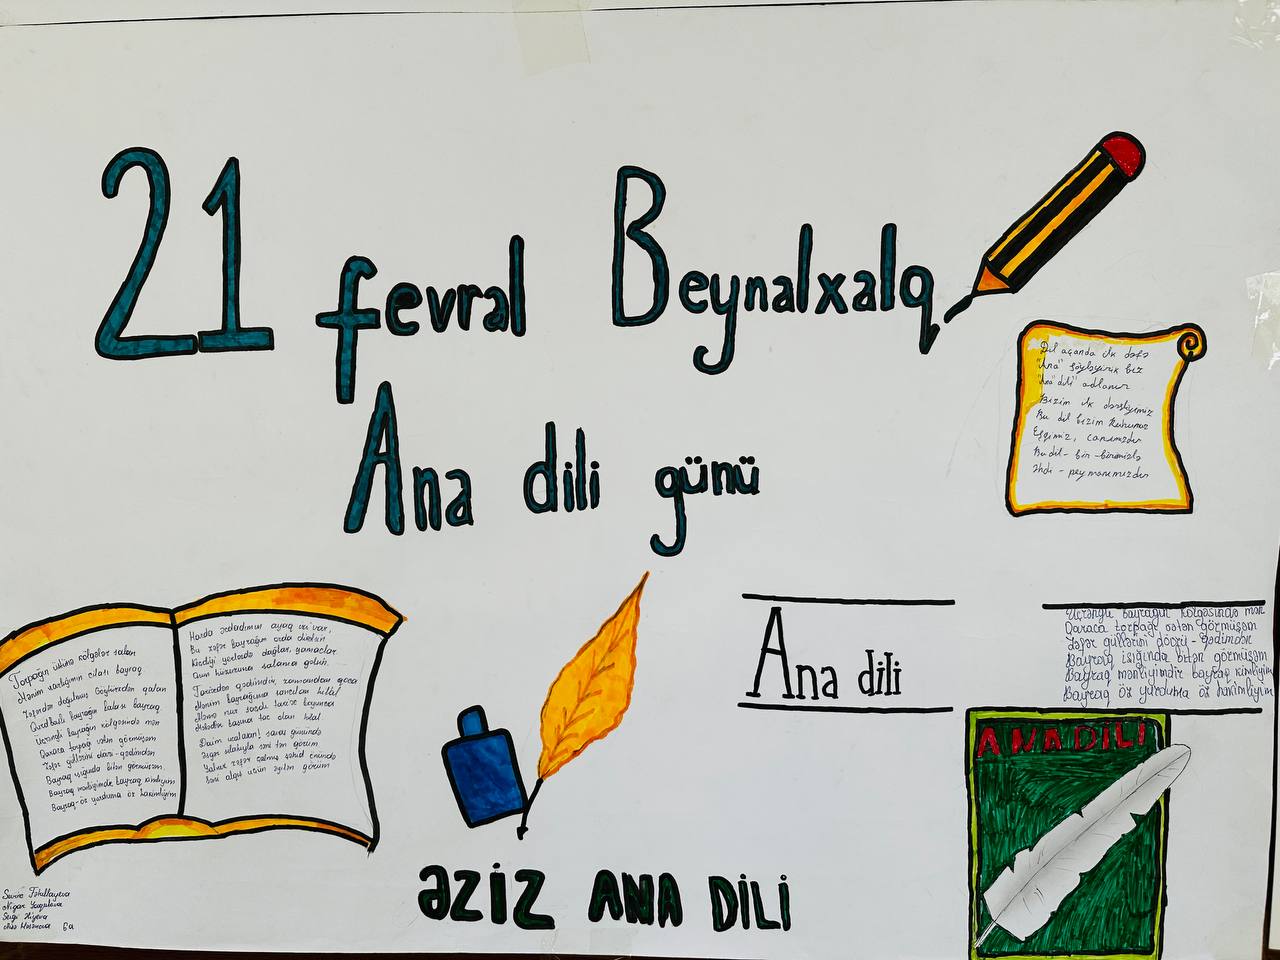 21 fevral Beynalxalq
Ana dili günü
Dil açanda ilk dəfə
"Ana" söyləyirik biz
"Ana dili" adlanır
Bizim ilk dərsliyimiz
Bu dil bizim Ruhumuz
Eşqimiz, canımızdır
Bu dil - bir-birimizlə
Əhdi - peymanımızdır
Torpağın üstünə kölgələr salan
Mənim varlığımın cilası bayraq
Zəfərdən doğulmuş Göytürkdən qalan
Qurdbaşlı bayrağın balası bayraq
Üçrəngli bayrağın kölgəsində mən
Qaraca torpağı vətən görmüşəm
Zəfər güllərini dövri-qədimdən
Bayraq işığında bitən görmüşəm.
Bayraq mənliyimdir bayraq kimliyim
Bayraq-öz yurduma öz hakimliyim
Harda əcdadımın ayaq izi var,
Bu zəfər bayrağım orda dikəlsin
Kəsdiyi yerlərdə dağlar, yamaclar
Onun hüzuruna salama gəlsin.
Tarixdən qədimdir, zamandan qoca
Mənim bayrağıma sancılan hilal
Mənə nur saçdı tarix boyunca
Mələklər başına tac olan hilal.
Daim ucalasan! savaş günündə
Əsgər silahıyla səni tən görüm
Yalnız zəfər çalmış şəhid önündə
Səni alqış üçün əyilən görüm
Ana dili
Üçrəngli bayrağın kölgəsində mən
Qaraca torpağı vətən görmüşəm
Zəfər güllərini dövri-qədimdən
Bayraq işığında bitən görmüşəm
Bayraq mənliyimdir bayraq kimliyim
Bayraq öz yurduma öz hakimliyim
ANA DİLİ
ƏZİZ ANA DİLİ
Fətullayeva
Nigar
Sevgi
6a